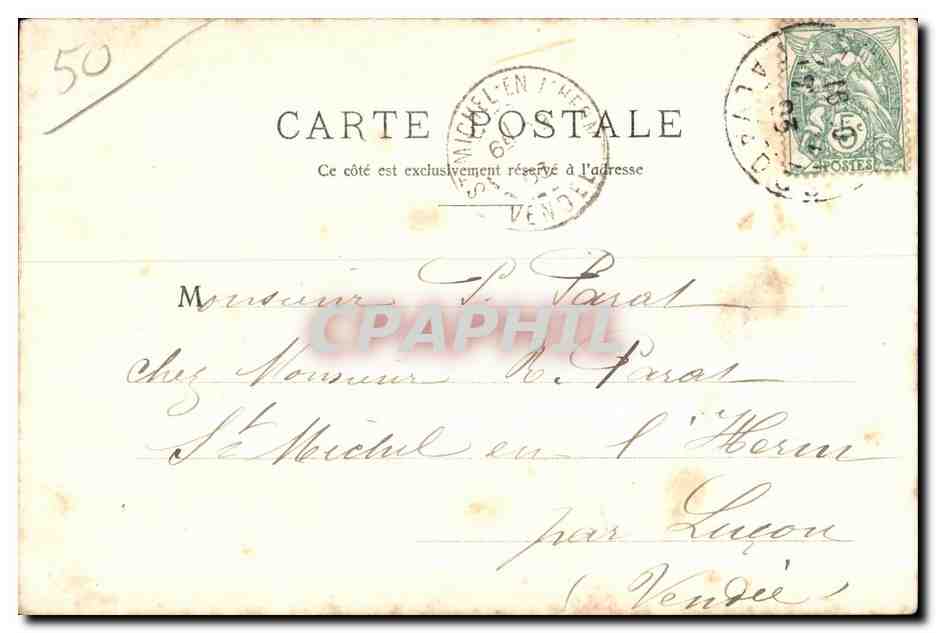 50
CARTE POSTALE
Ce côté est exclusivement réservé à l'adresse
ST MICHEL-EN-L'HERM
VENDÉE
5c
POSTES
Monsieur P. Parat
CPAPHIL
chez Monsieur R. Parat
St Michel en l'Herm
par Luçon
(Vendée)